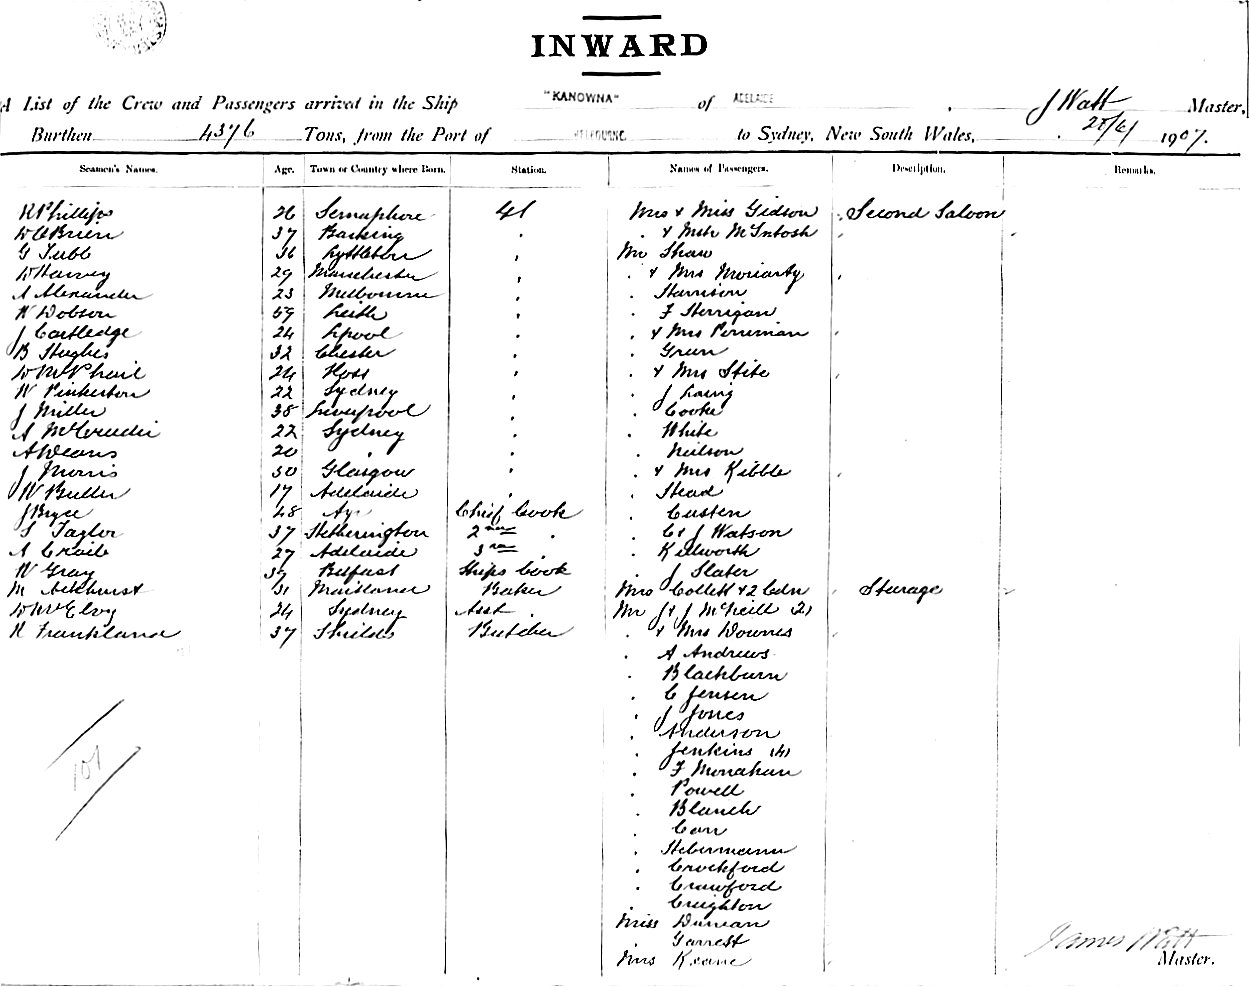 INWARD
A List of the Crew and Passengers arrived in the Ship "KANOWNA" of ADELAIDE, J Watt Master,
Burthen 4376 Tons, from the Port of MELBOURNE to Sydney, New South Wales, 1907.
Seamen's Names. Age. Town or Country where Born. Station. Names of Passengers. Description. Remarks.
R Phillips 26 Semaphore Mrs & Miss Gidson Second Saloon
W O'Brien 37 Barking " & McIntosh "
G Tubb 36 Lyttleton Mr Shaw
W Harvey 29 Manchester " & Mrs Moriarty "
A Alexander 23 Melbourne " Harrison
W Dobson 59 Leith " F Horrigan
J Cartledge 24 Lpool " & Mrs Perriman "
B Hughes 32 Chester " Green
W McPhail 24 Ross " & Mrs Stite "
W Pinkerton 22 Sydney " J Laing
J Miller 38 Liverpool " Cooke
A 22 Sydney " White
A Deans 20 " " Neilson
J Morris 30 Glasgow " & Mrs Kibble "
W Butler 17 Adelaide " Stead
J Bryce 48 Ayr Chief Cook " Custen
S Taylor 37 Hetherington 2nd " " C & J Watson
A Craib 27 Adelaide 3rd " " Kelworth
W Gray 37 Belfast Ships Cook " J Slater
M 31 Maitland Baker Mrs Collett & 2 Cdn " Steerage
W McElvy 24 Sydney Asst " Mr J & J McNeill (2)
R Frankland 37 Shields Butcher " & Mrs Downes "
" A Andrews
" Blackburn
" C Jensen
" J Jones
" Anderson
" Jenkins (4)
" F Monahan
" Powell
" Blanch
" Carr
" Hebermann
" Crockford
" Crawford
" Creighton
Miss Duncan
" Garrest
Mrs Keane
101
James Watt
Master.